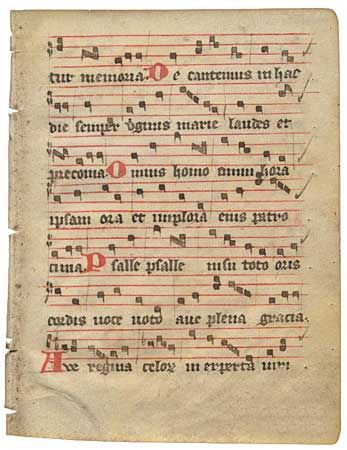 tur memoria. De cantemus in hac
die semper v̓ginis marie laudes et
preconia. Omnis homo omni hora
ipsam ora et implora eius patro
cinia. Psalle psalle nisu toto oris
cordis uoce uoto aue plena gracia.
Aue regina celoꝝ inexperta uiri